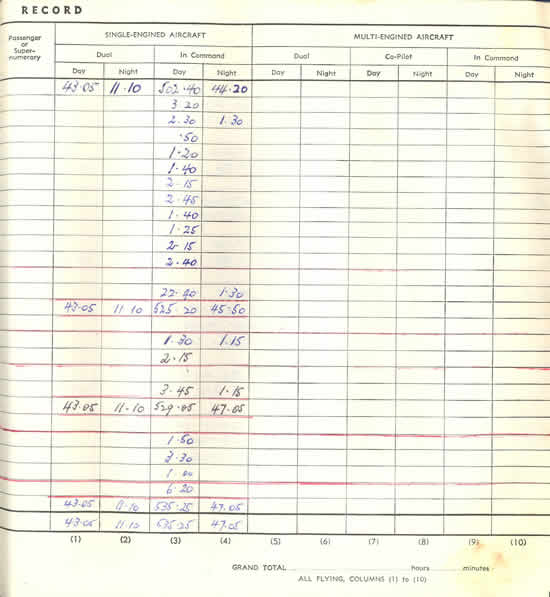 RECORD
Passenger or Super-numerary
SINGLE-ENGINED AIRCRAFT MULTI-ENGINED AIRCRAFT
Dual In Command Dual Co-Pilot In Command
Day Night Day Night Day Night Day Night Day Night
43·05 11·10 502·40 44·20
3·20
2·30 1·30
·50
1·20
1·40
2·15
2·45
1·40
1·25
2·15
2·40
22·40 1·30
43·05 11·10 525·20 45·50
1·30 1·15
2·15
3·45 1·15
43·05 11·10 529·05 47·05
1·50
3·30
1·00
6·20
43·05 11·10 535·25 47·05
43·05 11·10 535·25 47·05
(1) (2) (3) (4) (5) (6) (7) (8) (9) (10)
GRAND TOTAL hours minutes
ALL FLYING, COLUMNS (1) to (10)